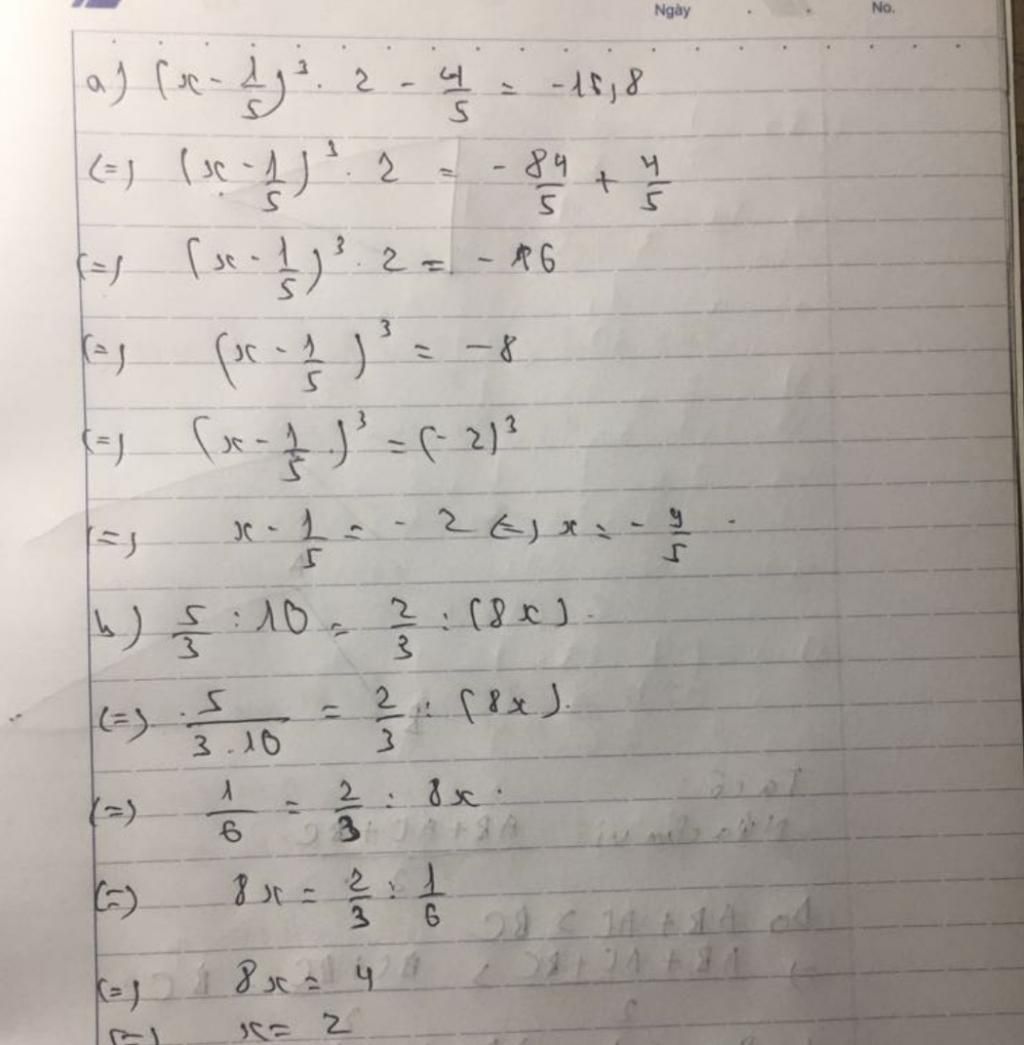 Ngày No.
a) (x - 1/5)³ . 2 - 4/5 = -16,8
(=) (x - 1/5)³ . 2 = - 84/5 + 4/5
(=) (x - 1/5)³ . 2 = - 16
(=) (x - 1/5)³ = -8
(=) (x - 1/5)³ = (- 2)³
(=) x - 1/5 = - 2 (=) x = - 9/5 .
b) 5/3 : 10 = 2/3 : (8x) .
(=) 5/3.10 = 2/3 : (8x).
(=) 1/6 = 2/3 : 8x .
(=) 8x = 2/3 : 1/6
(=) 8x = 4
(=) x = 2